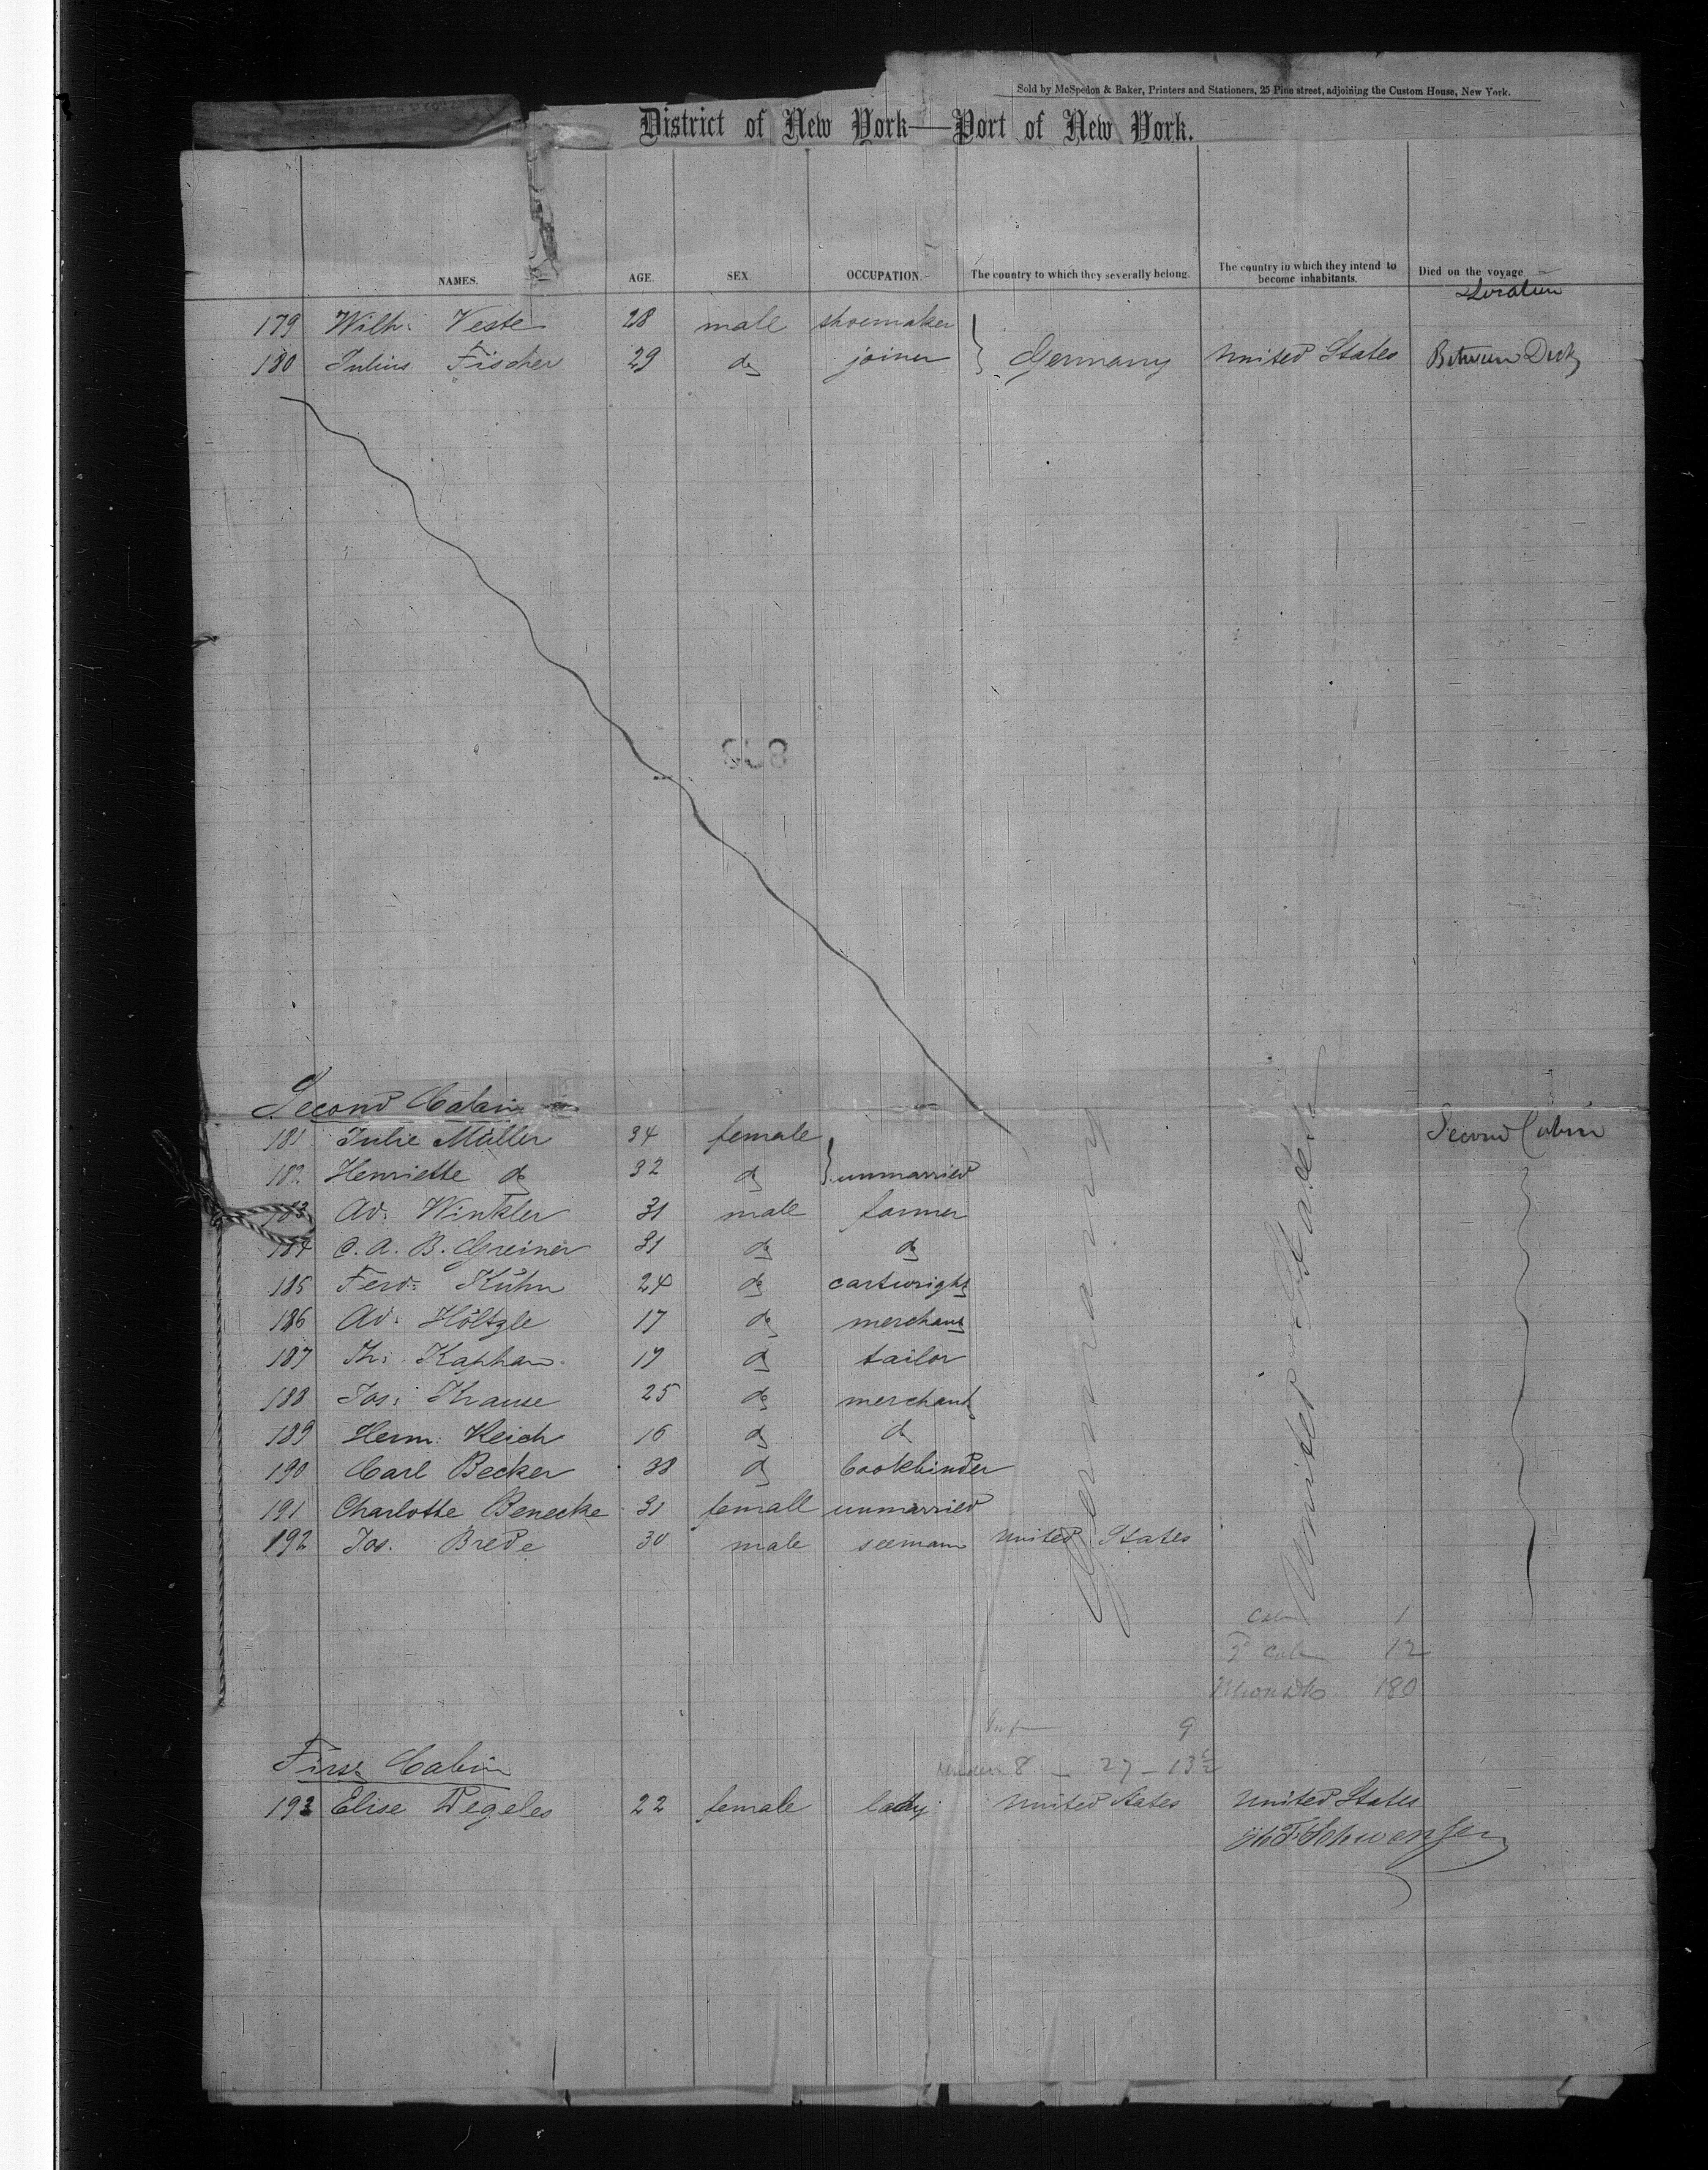 Sold by McSpedon & Baker, Printers and Stationers, 25 Pine street, adjoining the Custom House, New York.
District of New York—Port of New York.
NAMES. AGE. SEX. OCCUPATION. The country to which they severally belong. The country in which they intend to become inhabitants. Died on the voyage
Location
179 Wilh: Veste 28 male shoemaker
180 Julius Fischer 29 do joiner Germany United States Between Deck
Second Cabin
181 Julie Müller 34 female Second Cabin
182 Henriette do 32 do unmarried
183 Ad: Winkler 31 male farmer
184 C. A. B. Greiner 31 do do
185 Ferd: Kühn 24 do cartwright
186 Ad: Höltzle 17 do merchant
187 Th: Kaphan 19 do tailor
188 Jos: Krause 25 do merchant
189 Herm: Reich 16 do do
190 Carl Becker 38 do bookbinder
191 Charlotte Benecke 31 female unmarried
192 Jos. Brede 30 male seeman United States
Germany
United States
Cab 1
2d Cab 12
180
9
8 — 27 — 13
First Cabin
193 Elise Wegeles 22 female lady United States United States
Schwensen